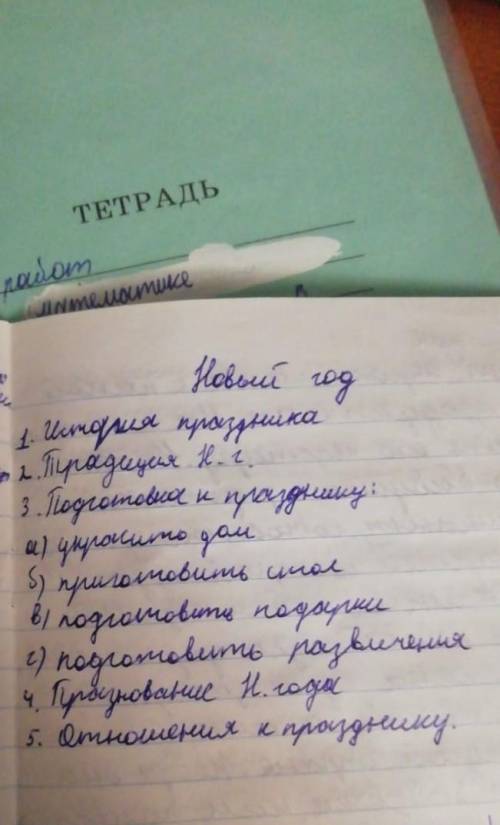 ТЕТРАДЬ
работ
математике
Новый год
1. История праздника
2. Традиция Н. г.
3. Подготовка к празднику:
а) украсить дом
б) приготовить стол
в) подготовить подарки
г) подготовить развлечения
4. Празнование Н. года
5. Отношения к празднику.